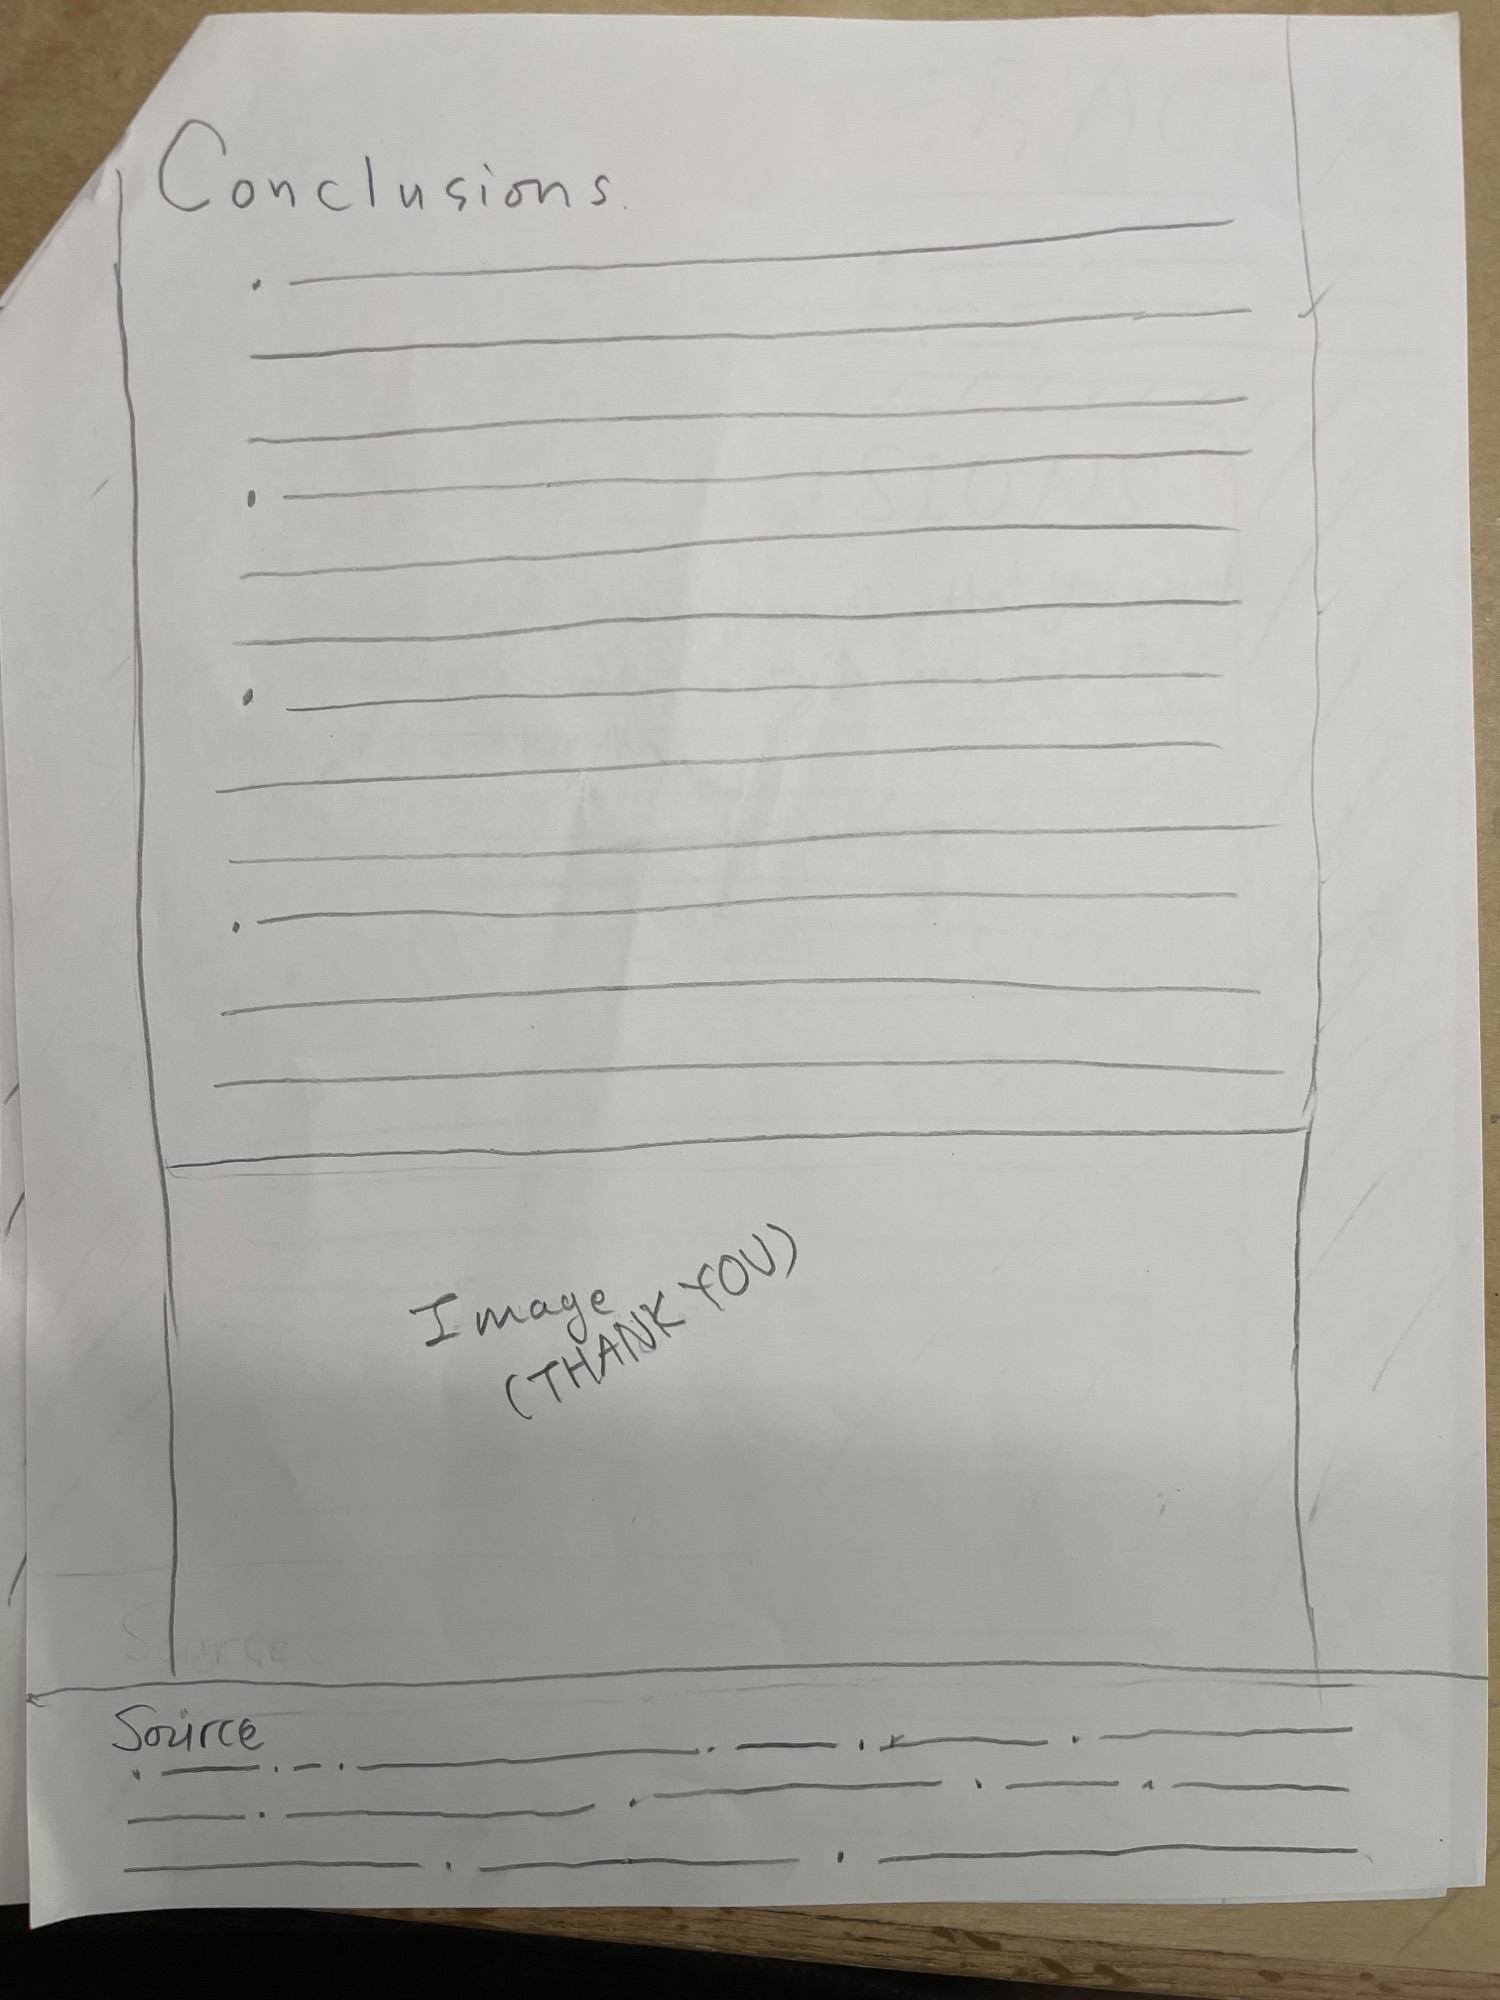 Conclusions.
Image
(THANK YOU)
Source
Source